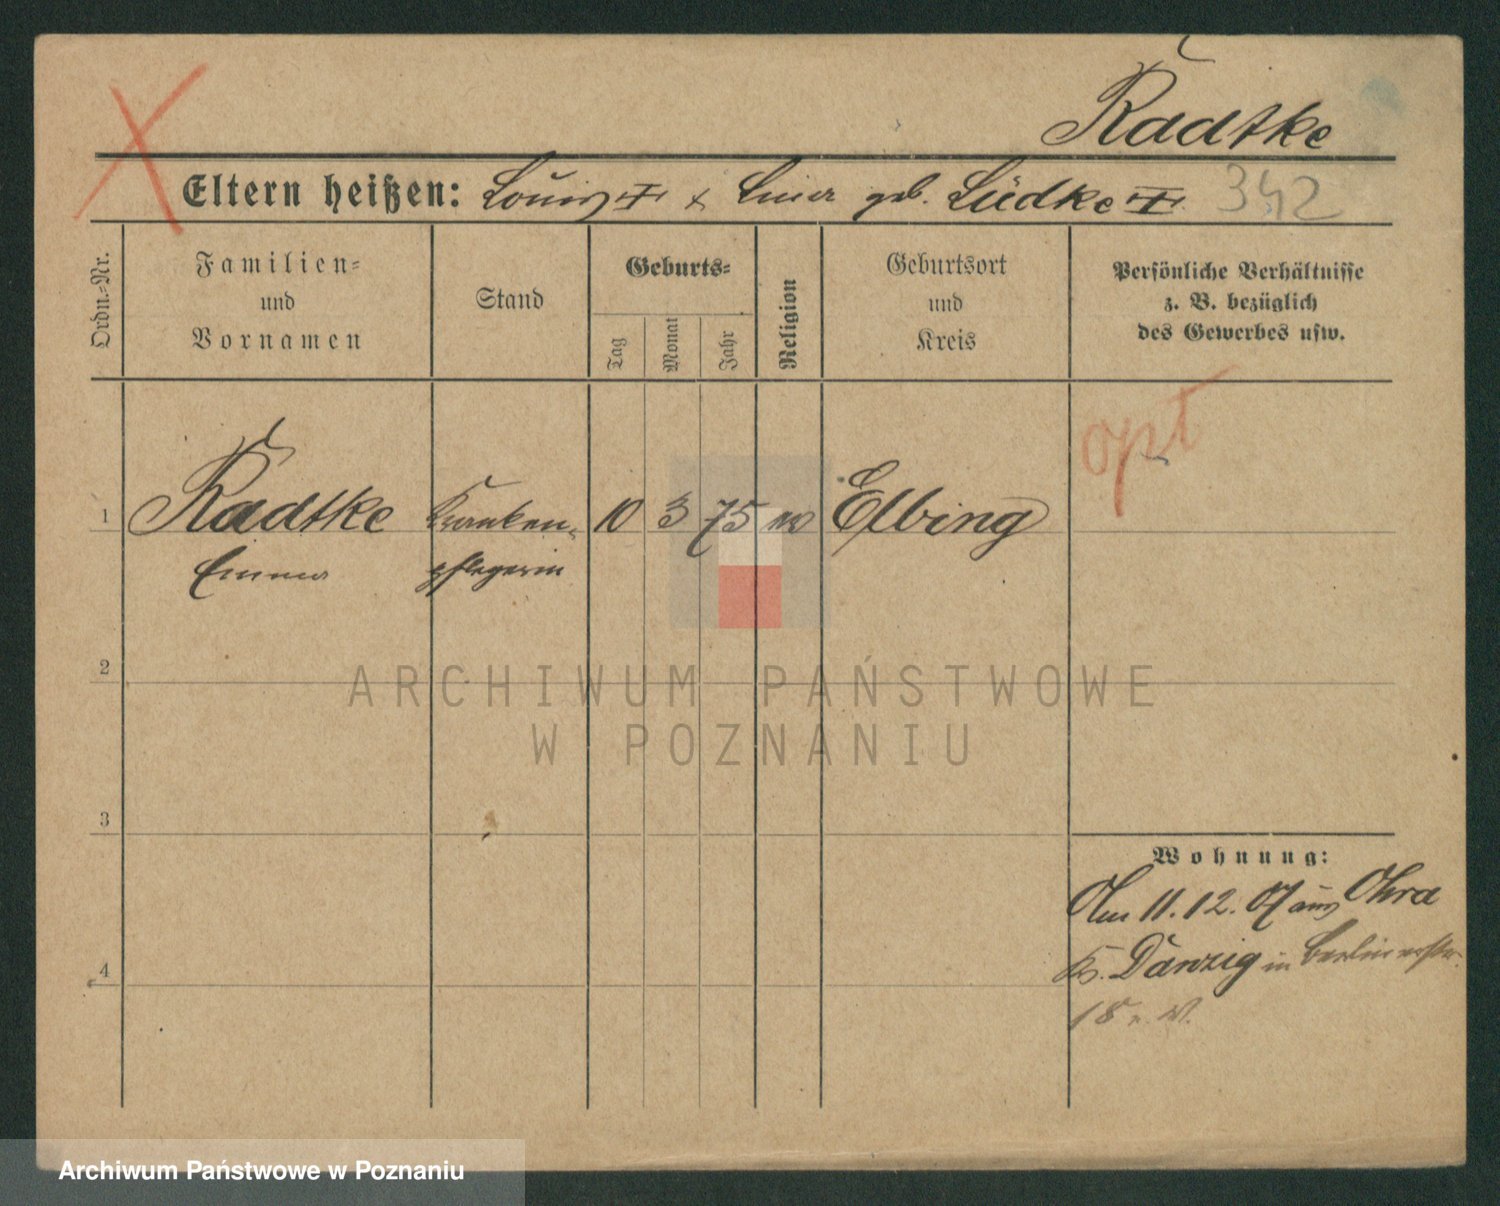 Radtke
Eltern heißen: Louis † & geb. Lüdke †. 342
Ordn.-Nr.
Familien-
und
Vornamen
Stand
Geburts-
Tag
Monat
Jahr
Religion
Geburtsort
und
Kreis
Persönliche Verhältnisse
z. B. bezüglich
des Gewerbes usw.
opt
1 Radtke Kranken- 10 3 75 Elbing
Emma pflegerin
2
ARCHIWUM PAŃSTWOWE
W POZNANIU
3
Wohnung:
Am 11.12.07 aus Ohra
Kr. Danzig in Berlinerstr.
4
18
Archiwum Państwowe w Poznaniu